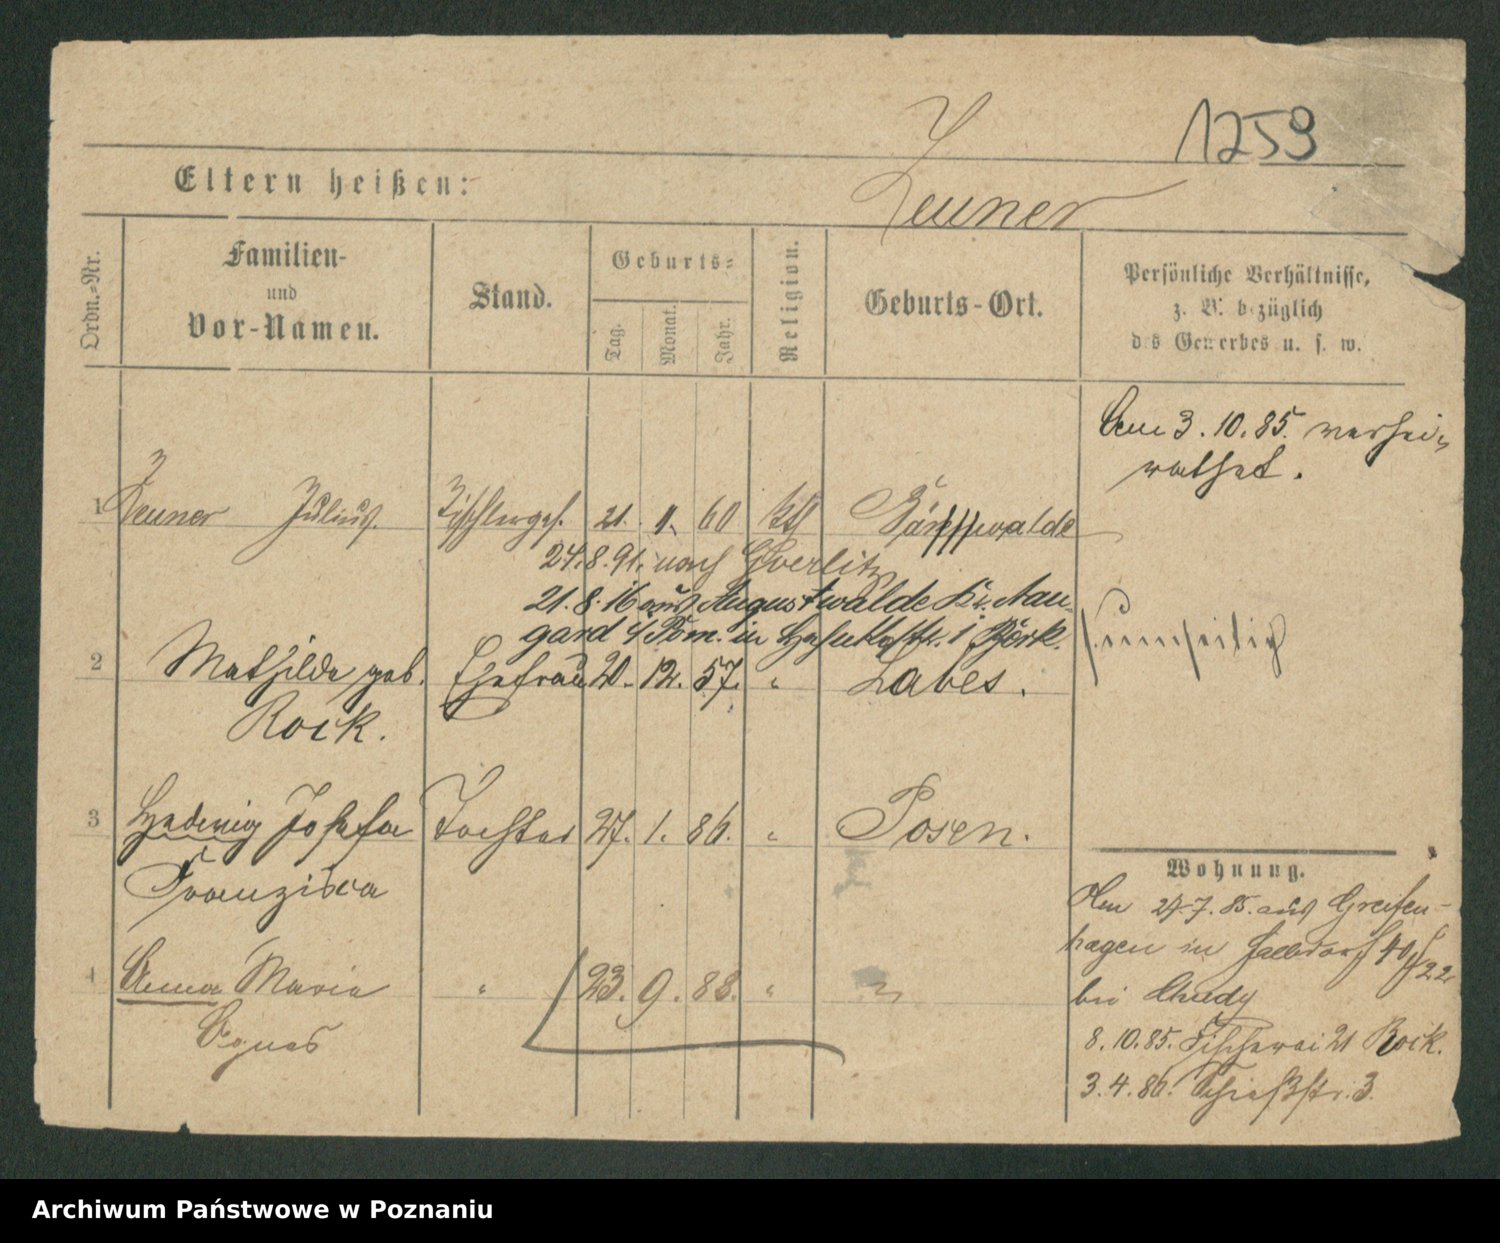 1259
Eltern heißen:
Zeuner
Ordn.-Nr.
Familien-
und
Vor-Namen.
Stand.
Geburts-
Tag.
Monat.
Jahr.
Religion.
Geburts-Ort.
Persönliche Verhältnisse,
z. B. bezüglich
des Gewerbes u. s. w.
Am 3.10.85. verhei-
rathet.
1 Zeuner Julius. Tischlerges. 21. 11. 60 ktl Bärwalde
24.8.91. nach Goerlitz
21.8.16 aus Augustwalde Kr. Nau-
gard i/Pom. in
2 Mathilde geb. Ehefrau 20. 12. 57. " Labes.
Rock.
3 Hedwig Josefa Tochter 27. 1. 86. " Posen.
Franziska
4 Anna Maria " 23. 9. 88. " "
Agnes
Wohnung.
Am 24.7.85. aus Greifen-
hagen in Halbdorf 40/22
bei Chudy
8.10.85. Fischerei 21 Rock.
3.4.86. Schießstr. 3.
Archiwum Państwowe w Poznaniu